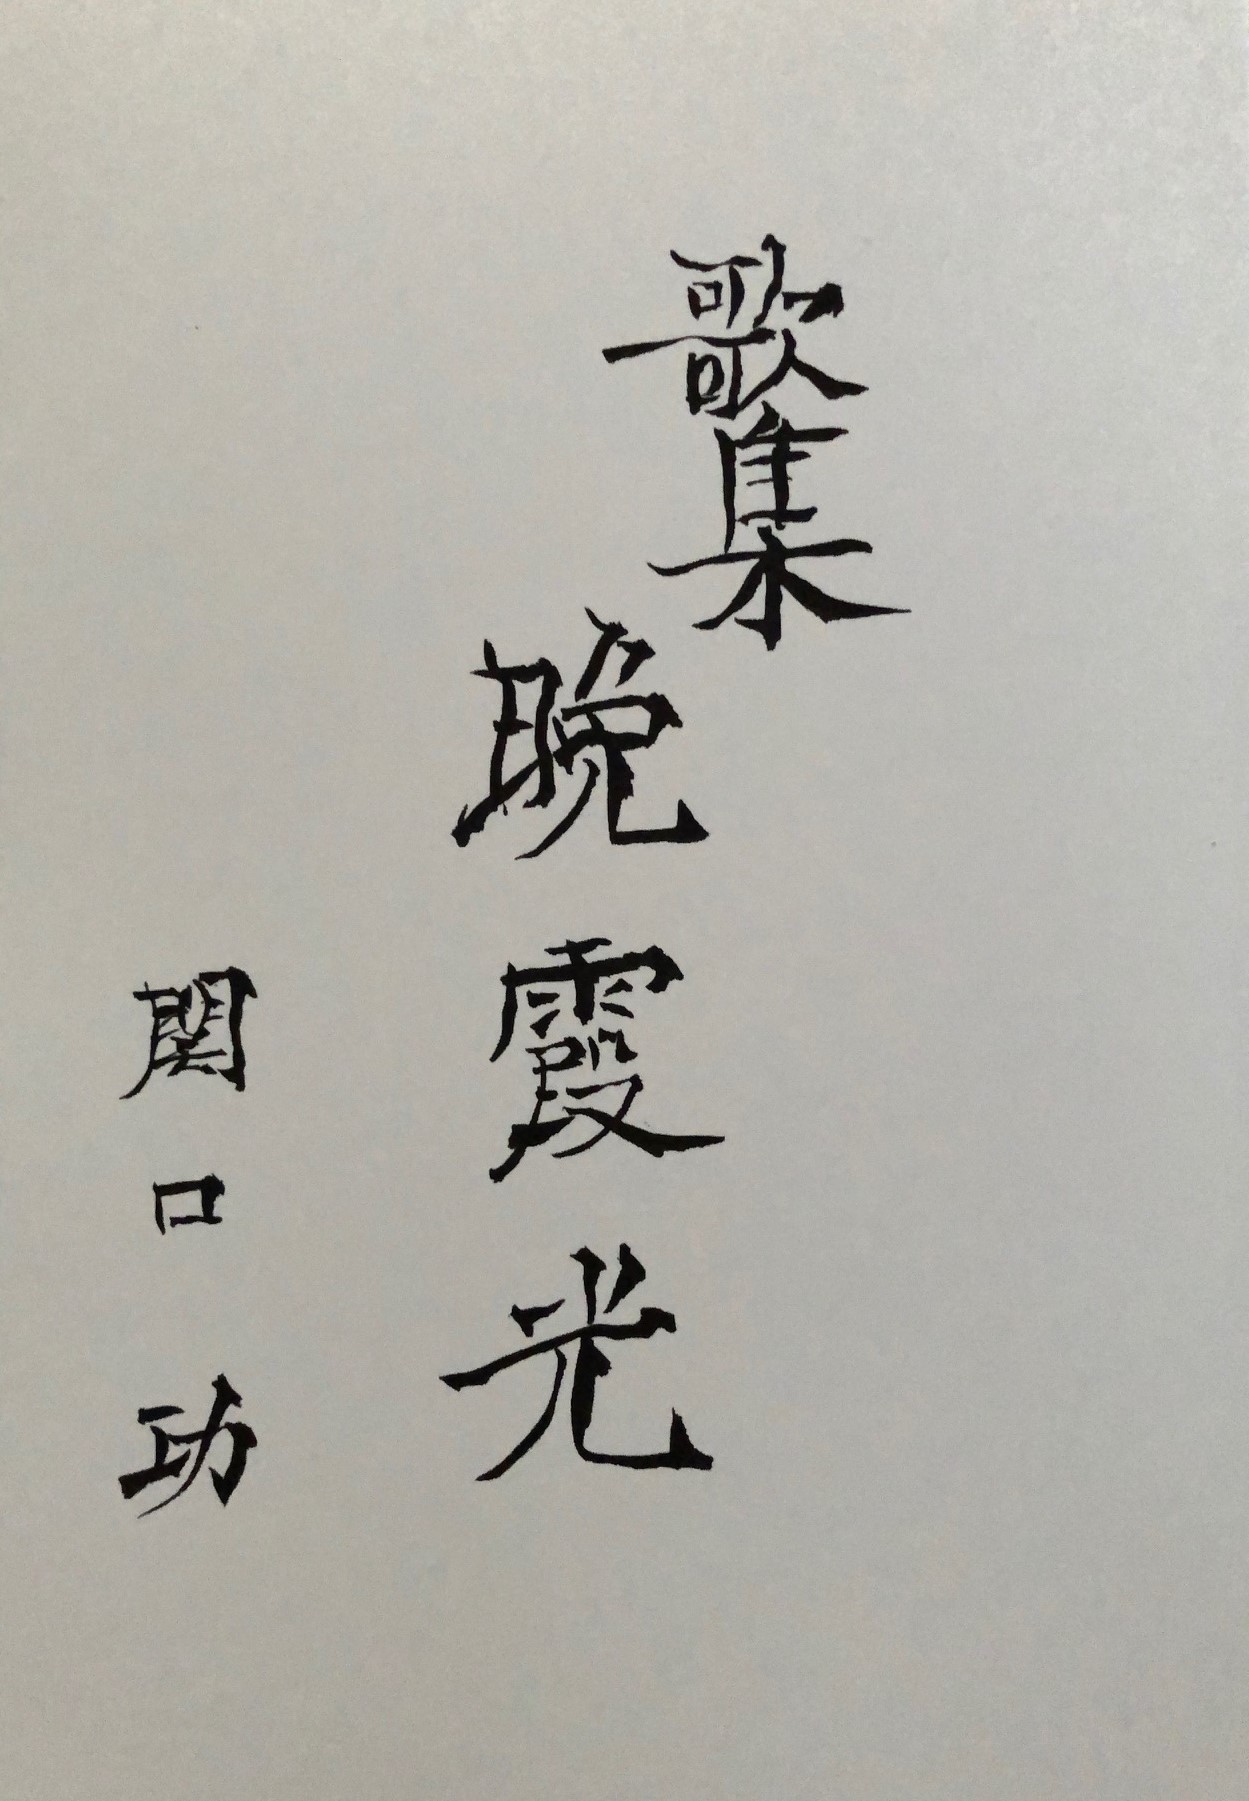 歌集
晩霞光
関口功